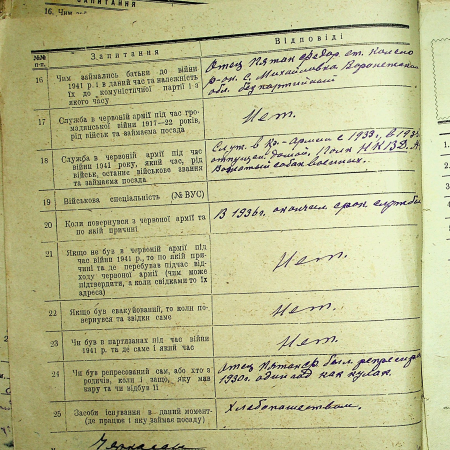 ЗАПИТАННЯ
16. Чим
№№ п-п.
Запитання
Відповіді
16
Чим займались батьки до війни
1941 р. і в даний час та належність
їх до комуністичної партії і з
якого часу
Отец
с. Михайловка Воронежской
обл. беспартийный
17
Служба в червоній армії під час гро-
мадянської війни 1917—22 років,
рід військ та займаєма посада
Нет.
18
Служба в червоній армії під час
війни 1941 року, який час, рід
військ, останнє військове звання
та займаєма посада
Служ. в Кр-Армии с 1933г. в 193
отпущен домой. Полк НКВД.
Вожатый собак военных.
19
Військова спеціяльність (№ ВУС)
20
Коли повернувся з червоної армії та
по якій причині
В 1936г. окончил срок службы
21
Якщо не був в червоній армії під
час війни 1941 р., то по якій при-
чині та де перебував підчас від-
ходу червоної армії (чим може
підтвердити, а коли свідками то їх
адреса)
Нет.
22
Якщо був евакуйований, то коли по-
вернувся та звідки саме
Нет.
23
Чи був в партизанах під час війни
1941 р. та де саме і який час
Нет.
24
Чи був репресований сам, або хто з
родичів, коли і защо, яку мав
кару та чи відбув її
Отец был репресир
1930г. один год как кулак.
25
Засоби існування в даний момент-
(де працює і яку займає посаду)
Хлебопашеством.